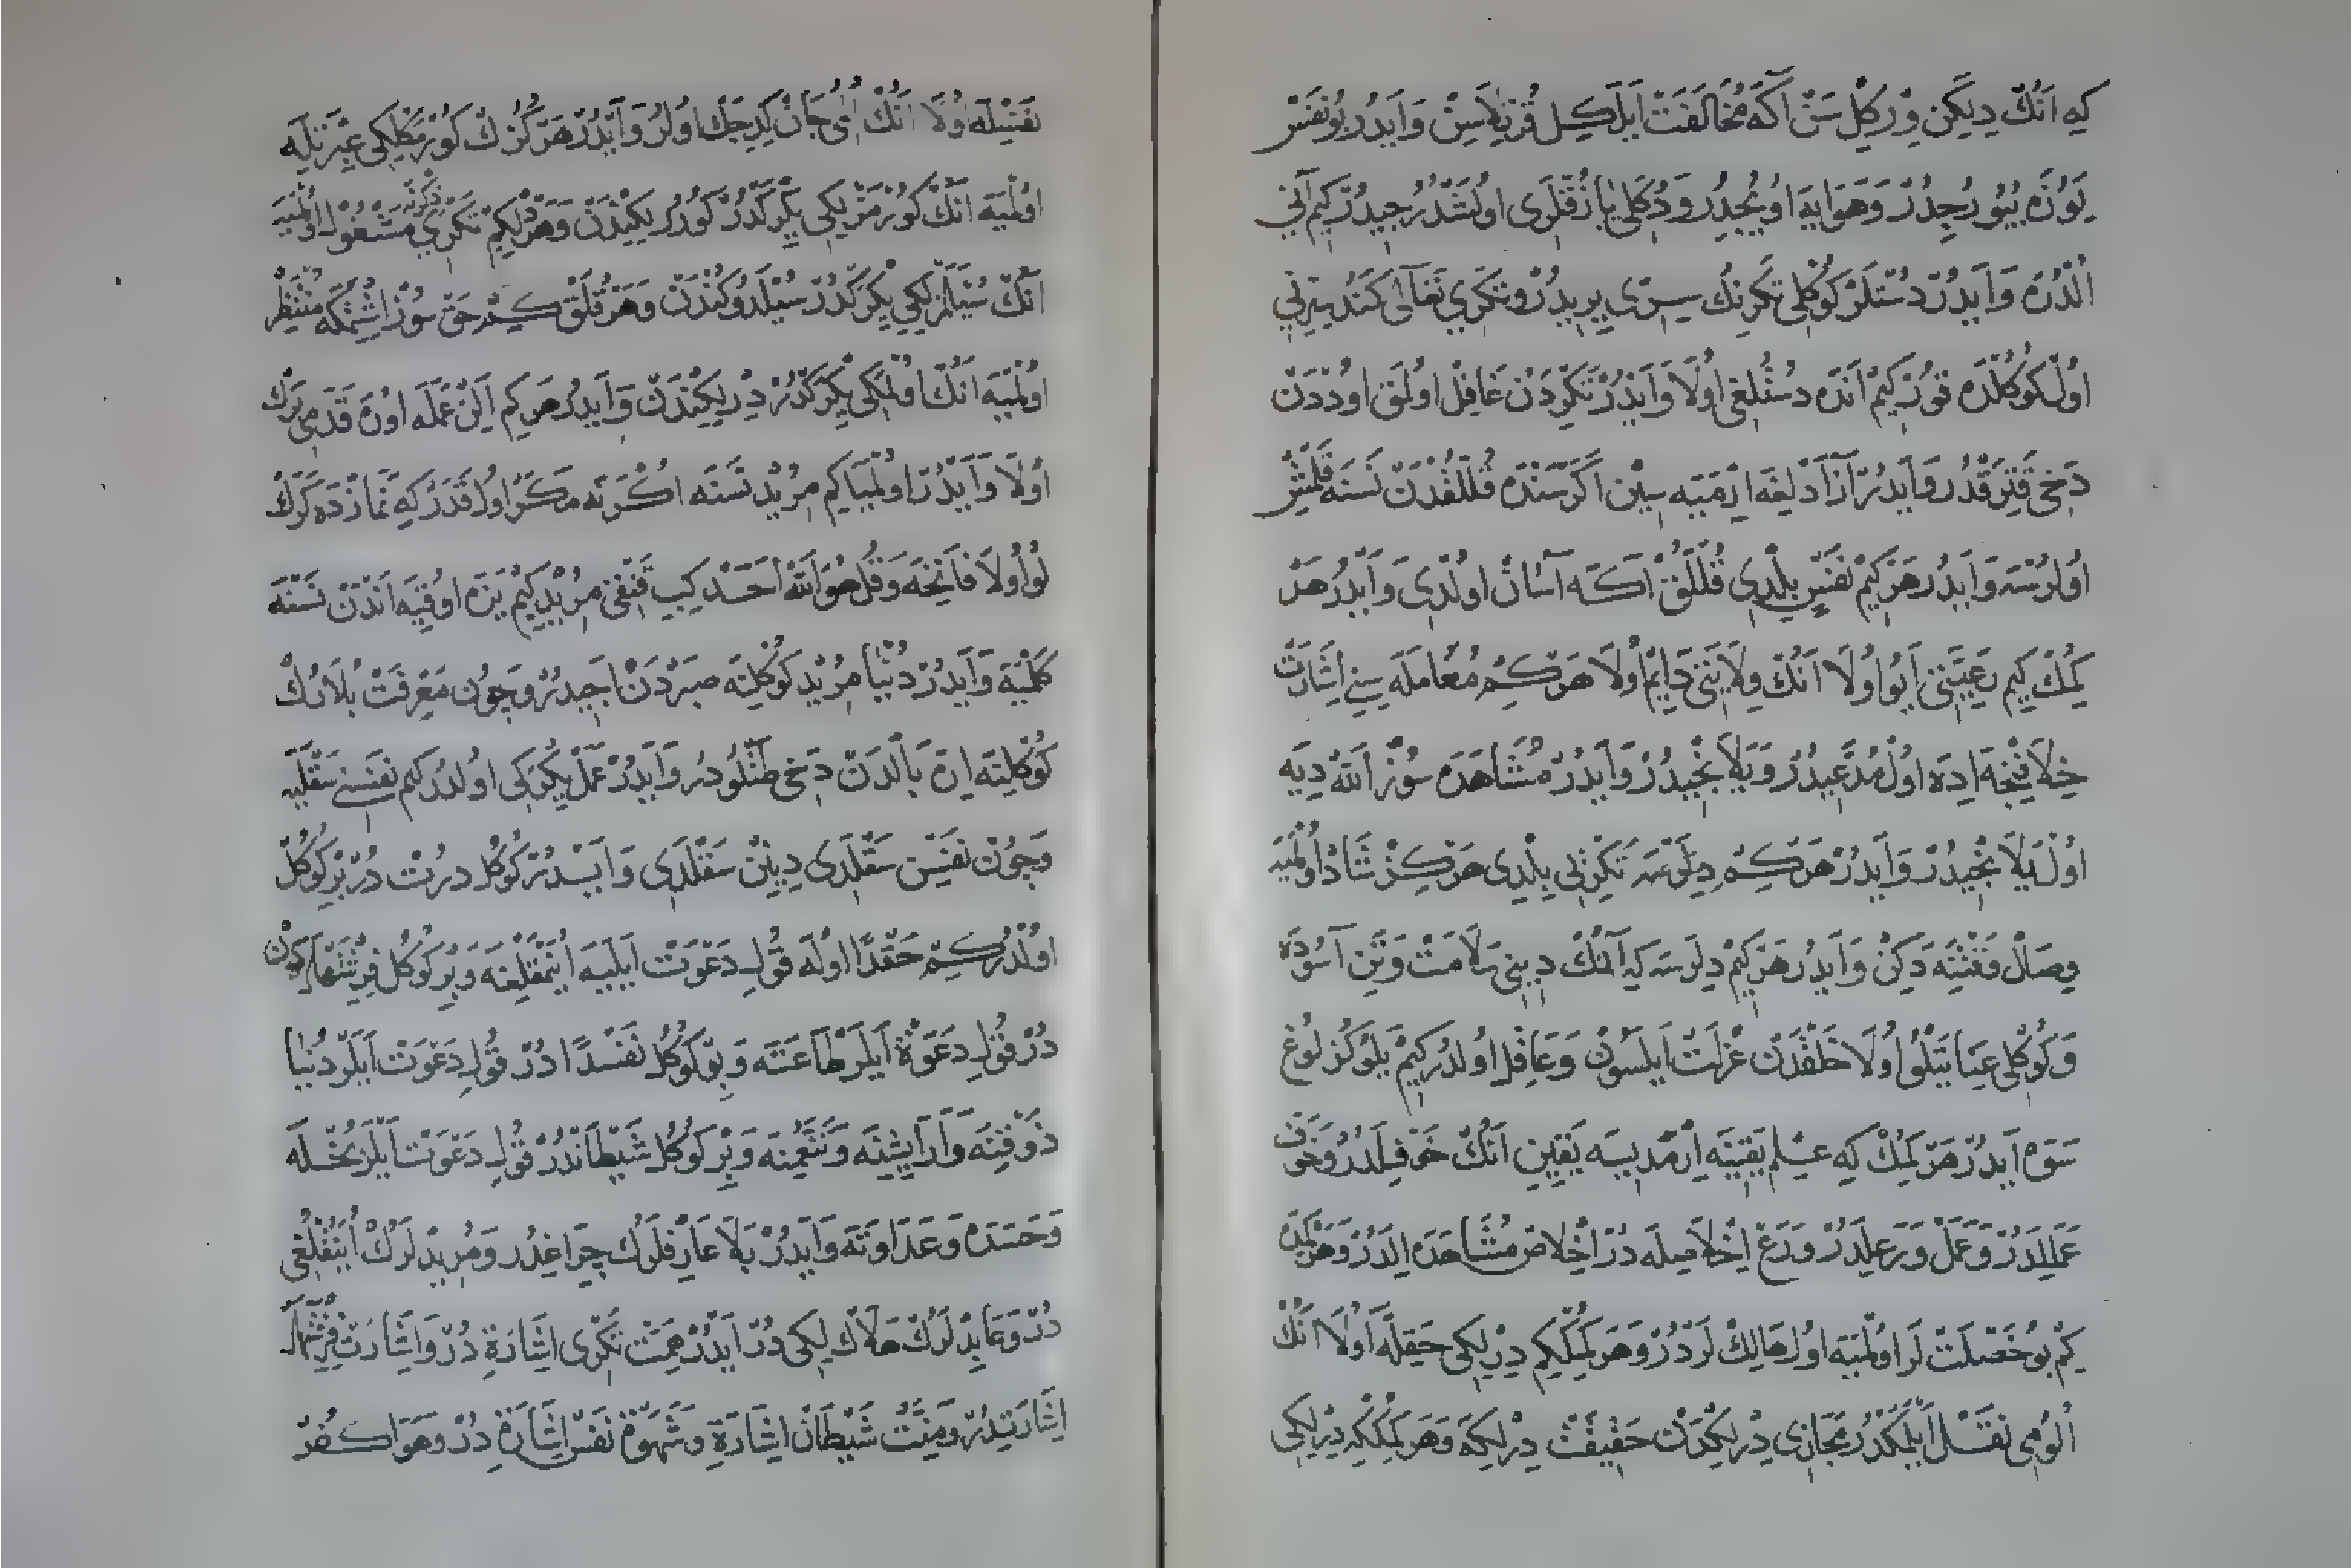 كه انك ديلكن وركل سن اكه مخالفت ايلكل قرتلاسن و ايدر بو نفس
يوزه بيورجدر و هوايه اويجدر و دكلي يازقلري اولشدرجيدر كيم آني
الدره و ايدر دستلر كوكلي تكرنك سري يريدر و تكري تعالى كندسرني
اول كوكلده قور كيم انده دستلغي اولا و ايدر تكردن غافل اولمق اوددن
دخي قتيرقدر و ايدر آزادلغه ارميه سين اكر سنده قللقدن نسنه قلمش
اولرسه و ايدر هر كيم نفس بلدي قللق اكه آسان اولدي و ايدر هر
كمك كيم رعيتي ايو اولا انك ولايتي دايم اولا هر كم معامله سني اشارت
خلافنجه اده اول مدعيدر و يلانجيدر و ايدر مشاهده سوز الله ديه
اول يلانجيدر و ايدر هر كم دلرسه تكرني بلدي هركز شاد اولميه
وصال وقتنه دكن و ايدر هر كيم دلرسه كه آنك ديني سلامت و تن آسوده
و كوكلي عنايتلو اولا خلقدن عزلت ايلسون و عاقل اولدر كيم يلوكزلوغ
سوه ايدر هر كمك كه علم يقينه ارمديسه يقين انك خوفيلدر و خوف
عمليلدر و عمل ورعيلدر و ورع اخلاصيله در اخلاص مشاهده الدر و هر كمده
كم بو خصلت لر اولميه اول هالك لردر و هر كمكيم درلكي حقله اولا انك
الومي نقل ايلمكدر مجازي درلكدن حقيقت درلكه و هر كمكه درلكي
نفسيله اولا انك المي جان كدجك اولر و ايدر هر كزك كورمكلكي عبرتله
اولميه انك كورمزلكي يكركدر كوردكيندن و هر دلكم تكري ذكرنه مشغول اولميه
انك سيلمزلكي يكركدر سيلدوكندن و هر قلق كم حق سوز اشتمكه منتظر
اولميه انك اولمكي يكركدر درلكيندن و ايدر هر كم الن عمله اوره قدمي برك
اولا و ايدر اولميا كم مريد نسنه اكرنه مكر اول قدر كه نمازده كرك
لو اولا فاتحه و قل هو الله احد كب قنغي مريد كيم يزه اوقيه اندن نسنه
كلميه و ايدر دنيا مريد كوكلنه صبردن اجيدر و چون معرفت بلانك
كوكلنه ان بالدن دخي طتلودر و ايدر عمل يكركي اولدر كم نفسني سقليه
و چون نفسن سقلدي دينن سقلدي و ايدر كوكل درت در بر كوكل
اولدر كم حقدا اوله قولي دعوت ايليه اينمقلغه و بر كوكل فرشتهاردن
در قولي دعوة ايلر طاعته و بر كوكل نفسدا در قولي دعوت ايلر دنيا
ذوقنه و آرايشنه و تنعمنه و بر كوكل شيطاندر قولي دعوت ايلر بخله
و حسده و عداوته و ايدر بلا عارفلرك چراغدر و مريدلرك اينقلغي
در و عابدلرك هلاك لكي در ايدر همت تكري اشارة در و اشارت فرشتهار
اشارتدر و منت شيطان اشارة و شهوة نفس اشارة در و هوا كفر